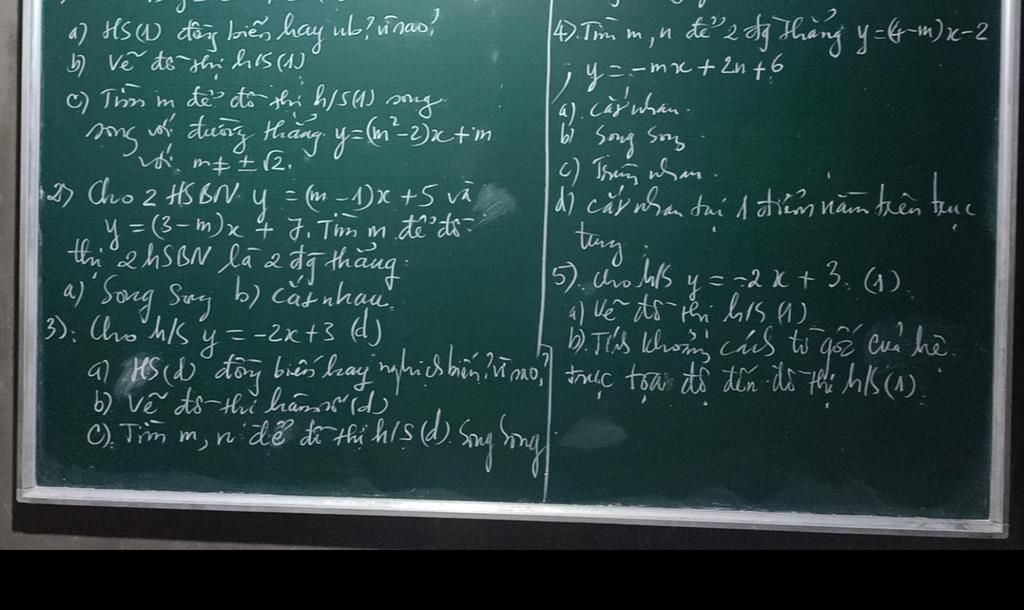 a) HS(1) đồng biến hay nb? vì sao?
b) Vẽ đồ thị h/s (1)
c) Tìm m để đồ thị h/s(1) song
song với đường thẳng y=(m²-2)x+m
với m≠ ±√2.
2) Cho 2 HSBN y = (m-1)x +5 và
y = (3-m)x + 7. Tìm m để đồ
thị 2 hSBN là 2 đg thẳng:
a) Song Song b) Cắt nhau.
3): Cho h/s y = -2x+3 (d)
a) HS(d) đồng biến hay nghịch biến? vì sao?
b) Vẽ đồ thị hàm số (d)
c). Tìm m, n để đồ thị h/s (d) Song Song
4). Tìm m, n để 2 đg thẳng y=(4-m)x-2
, y = -mx + 2n +6
a). Cắt nhau.
b) Song Song
c) Trùng nhau.
d) Cắt nhau tại 1 điểm nằm trên trục
tung.
5). Cho h/s y = -2x + 3. (1)
a) Vẽ đồ thị h/s (1)
b). Tính khoảng cách từ gốc của hệ
trục tọa độ đến đồ thị h/s (1).